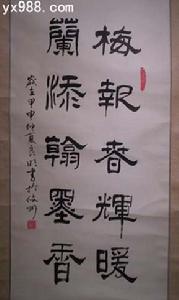 yx988.com
梅報春輝暖
蘭添翰墨香
歲在甲申仲夏
書於